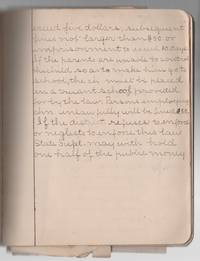 exceed five dollars, subsequent
fines not larger than $50. or
imprisonment to exceed 10 days
If the parents are unable to control
the child, so as to make him go to
school, the ch. must be placed
in a truant school provided
for by the law. Persons employing
chn. unlawfully will be fined
If the district refuses to enforce
or neglects to enforce this law
State Supt. may with hold
one half of the public money